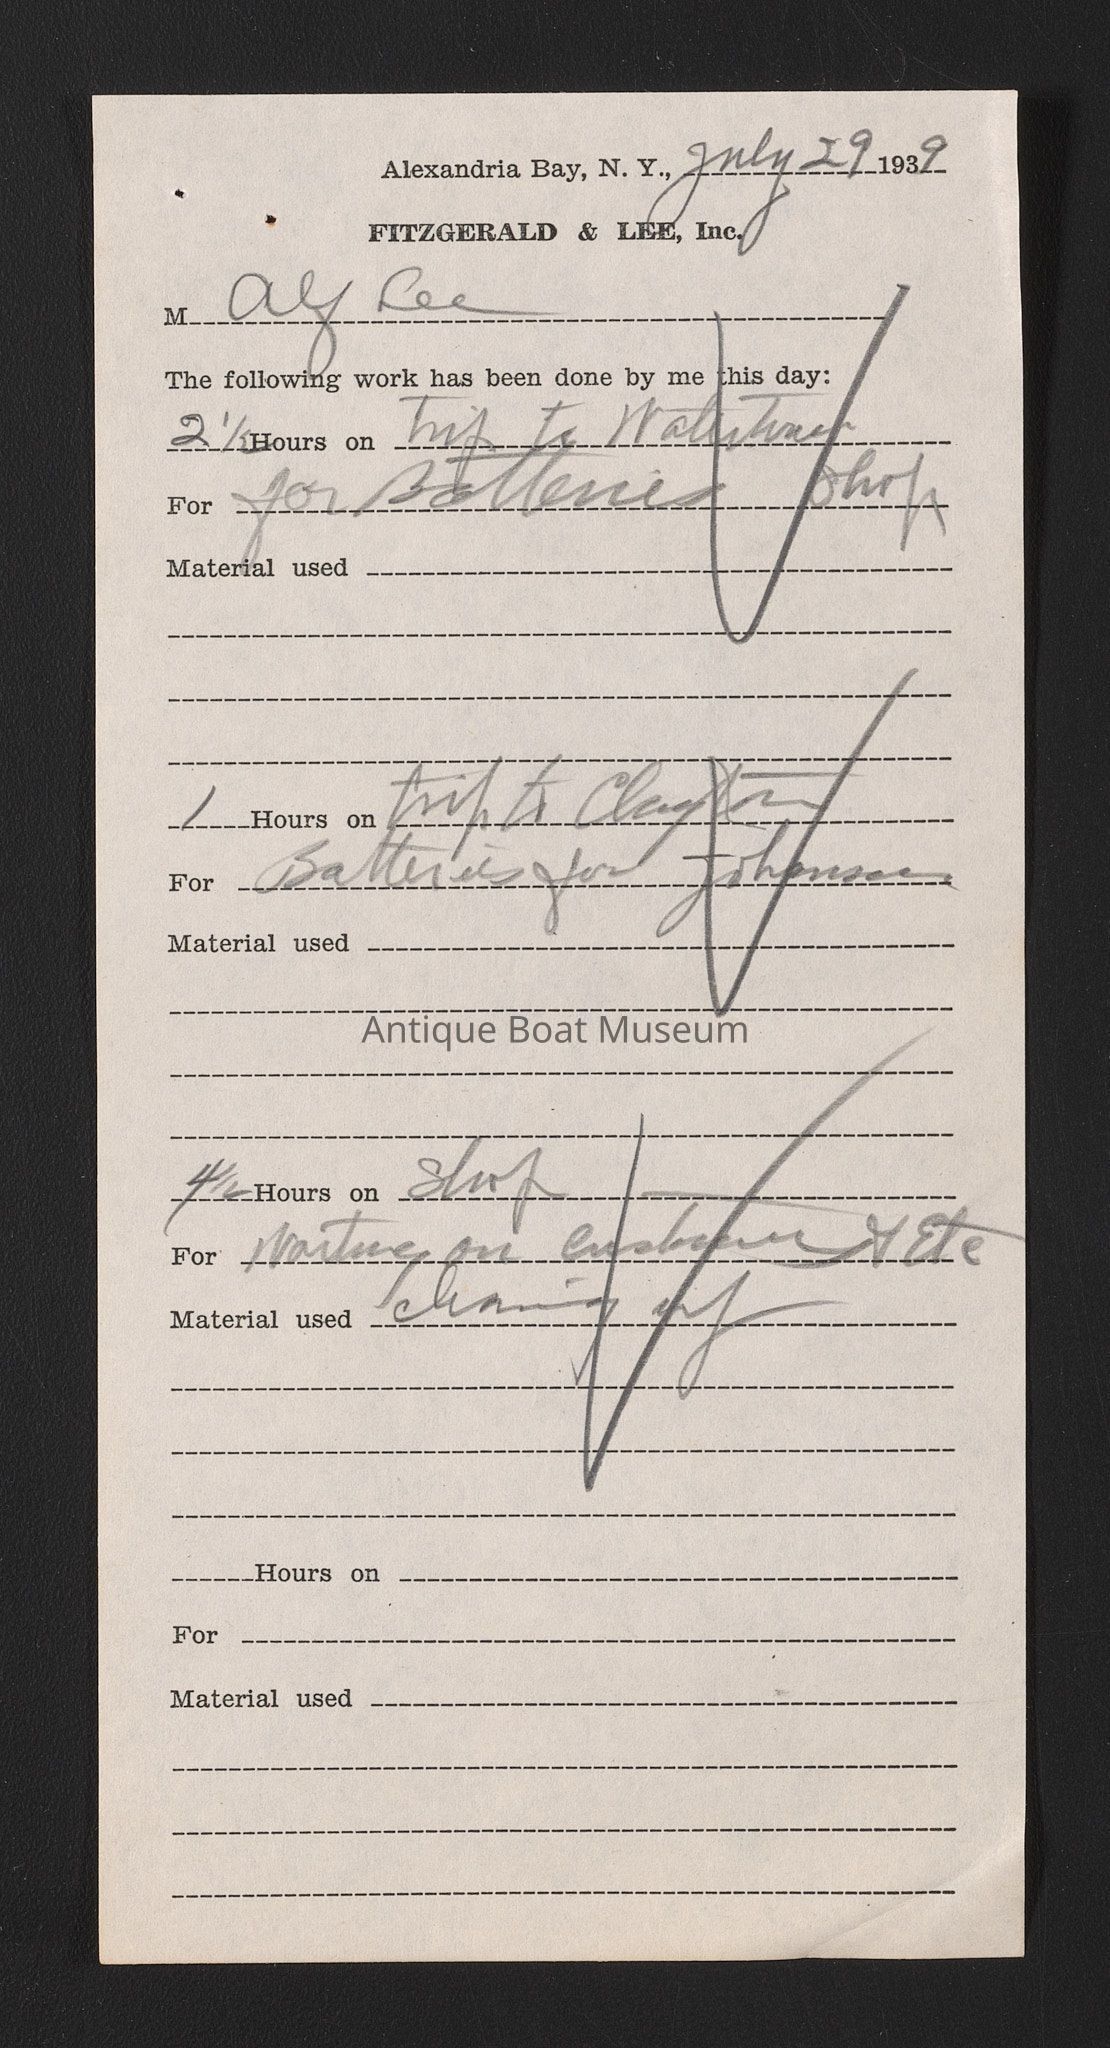 Alexandria Bay, N. Y., July 29 1939
FITZGERALD & LEE, Inc.
M Alf Lee
The following work has been done by me this day:
2 1/2 Hours on trip to Watertown
For for Batteries Shop
Material used
1 Hours on trip to Clayton
For Batteries for Johanson
Material used
Antique Boat Museum
4 1/2 Hours on Shop
For Waiting on customers & Etc
Material used cleaning up
Hours on
For
Material used